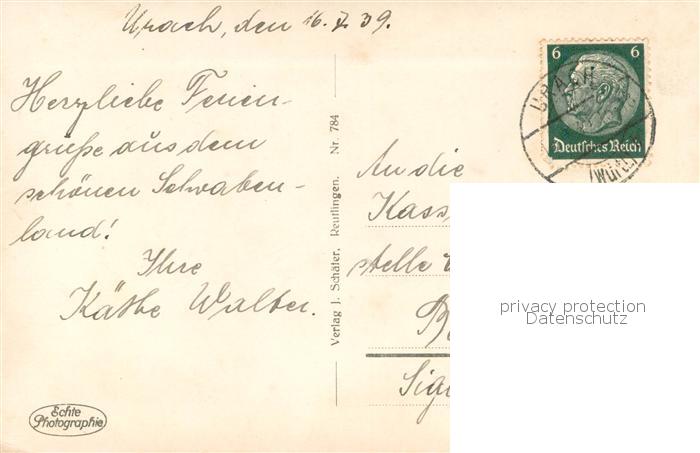 Urach, den 16. 7. 39.
Herzliche Ferien-
grüße aus dem
schönen Schwaben-
land!
Ihre
Käthe Walter.
Echte
Photographie
Verlag J. Schäfer, Reutlingen. Nr. 784
6 6
Deutsches Reich
URACH
(Württ)
An die
Kass
stelle
Sig
privacy protection
Datenschutz